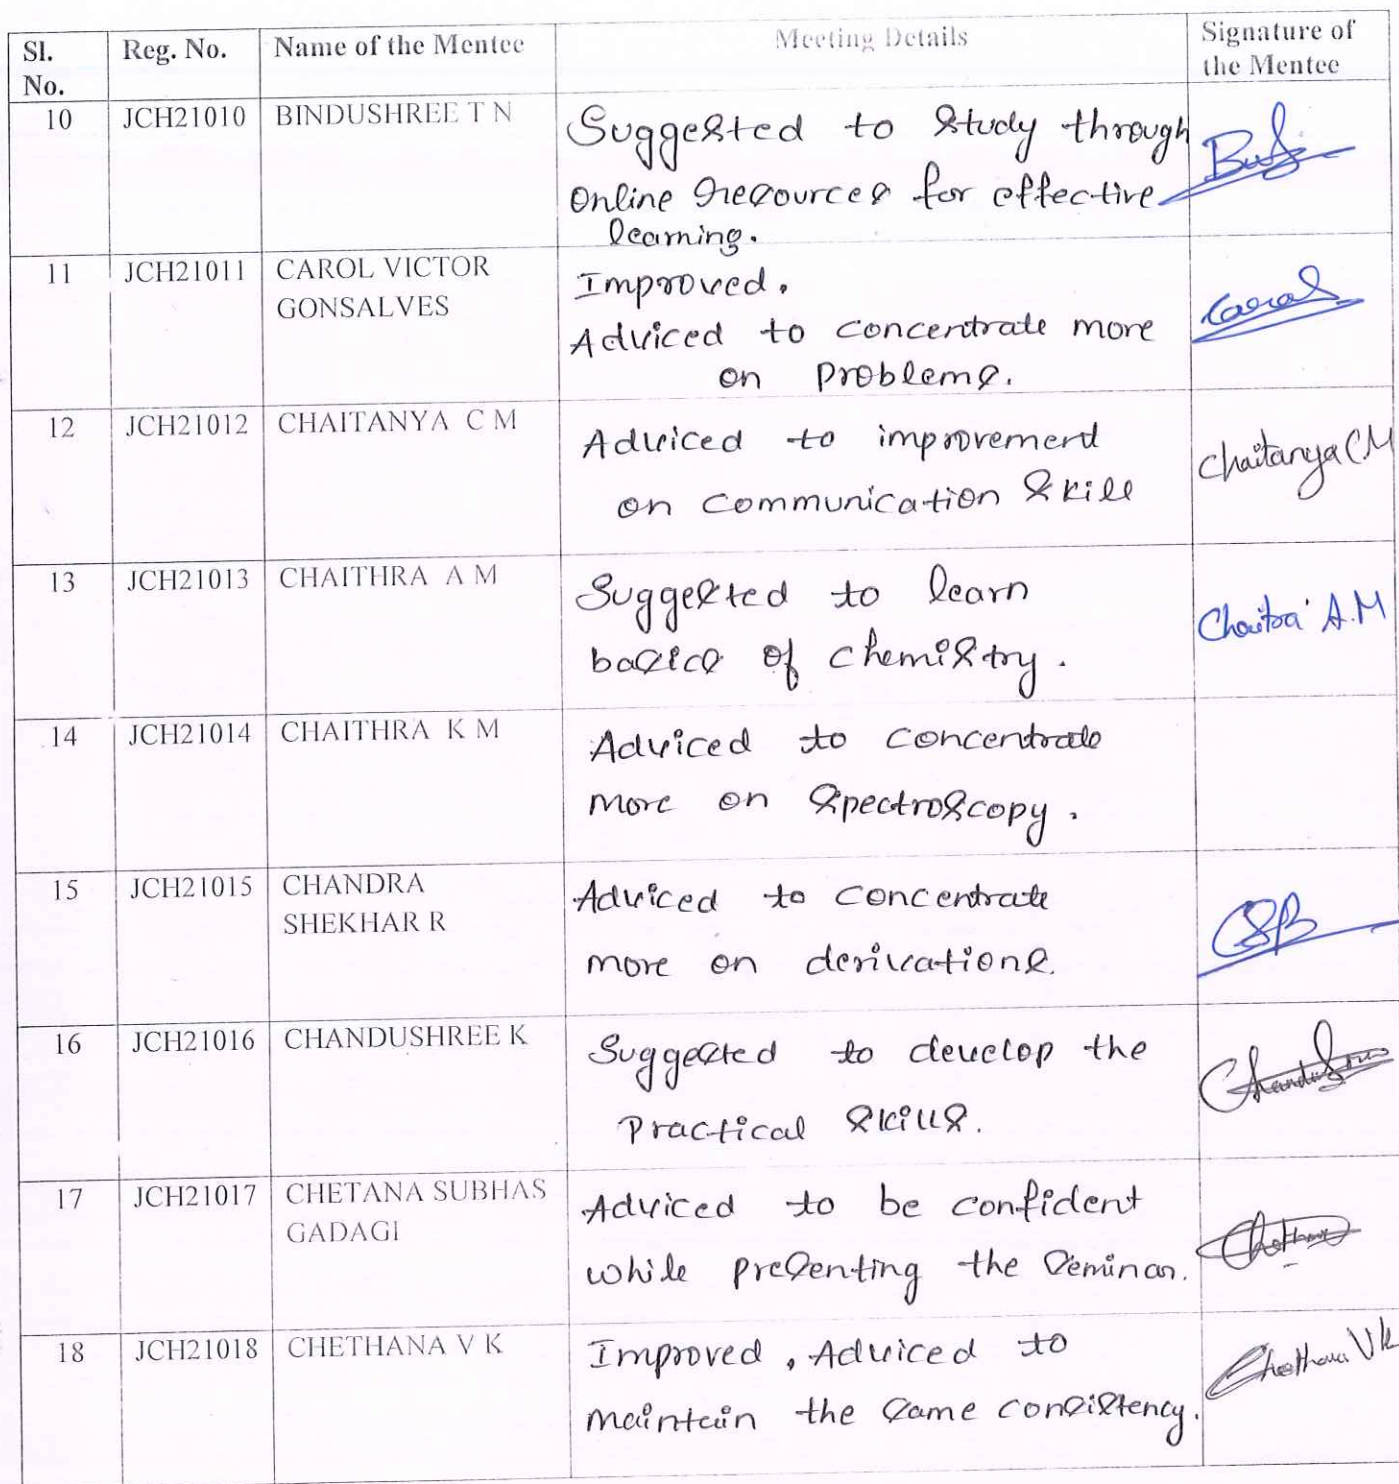 Sl. No. Reg. No. Name of the Mentee Meeting Details Signature of the Mentee
10 JCH21010 BINDUSHREE T N Suggested to study through
Online resources for effective
learning.
11 JCH21011 CAROL VICTOR GONSALVES Improved.
Adviced to concentrate more
on problems.
Carol
12 JCH21012 CHAITANYA C M Adviced to improvement
on communication skill
Chaitanya C M
13 JCH21013 CHAITHRA A M Suggested to learn
basics of chemistry.
Chaitra A.M
14 JCH21014 CHAITHRA K M Adviced to concentrate
more on spectroscopy.
15 JCH21015 CHANDRA SHEKHAR R Adviced to concentrate
more on derivations.
16 JCH21016 CHANDUSHREE K Suggested to develop the
Practical skills.
17 JCH21017 CHETANA SUBHAS GADAGI Adviced to be confident
while presenting the seminar.
18 JCH21018 CHETHANA V K Improved, Adviced to
maintain the same consistency.
Chethana V k